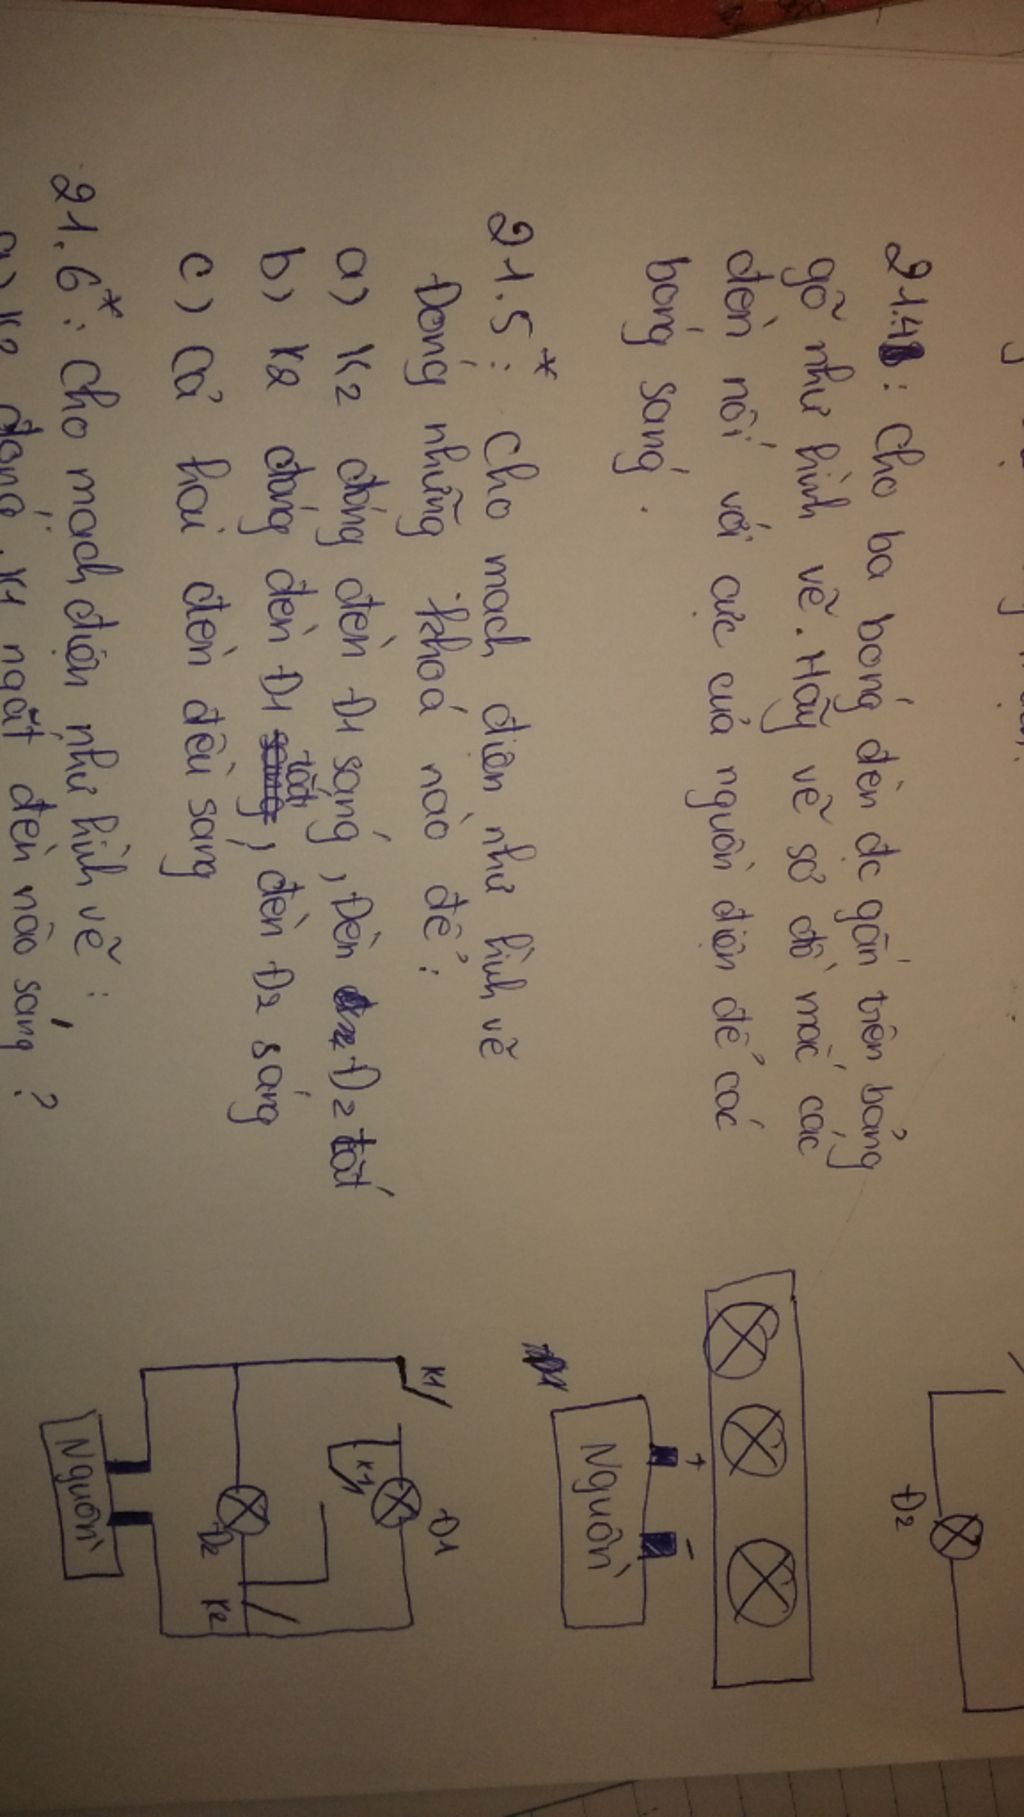 21.4: Cho ba bóng đèn đc gắn trên bảng
gỗ như hình vẽ. Hãy vẽ sơ đồ mắc các
đèn nối với cực của nguồn điện để các
bóng sáng.
+ -
Nguồn
Đ2
21.5*: Cho mạch điện như hình vẽ
Đóng những khoá nào để:
a) K2 đóng đèn Đ1 sáng, Đèn Đ2 tắt
b) K2 đóng đèn Đ1 tắt, đèn Đ2 sáng
c) Cả hai đèn đều sáng
K1
Đ1
K1
Đ2
K2
Nguồn
21.6*: Cho mạch điện như hình vẽ:
a) K2 đóng, K1 ngắt đèn nào sáng?